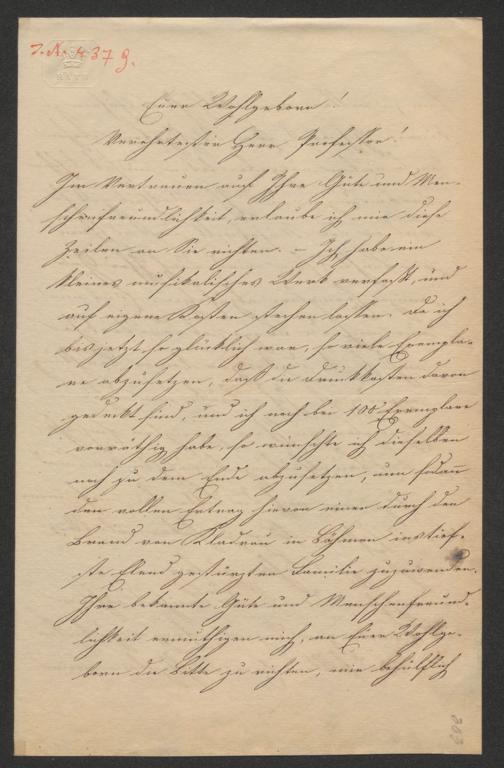 J. N. 4379.
BATH
Euer Wohlgeborn!
Verehrtester Herr Professor!
Im Vertrauen auf Ihre Güte und Men-
schenfreundlichkeit, erlaube ich mir diese
Zeilen an Sie richten. – Ich habe ein
kleines musikalisches Werk verfaßt, und
auf eigene Kosten stechen lassen. Da ich
bis jetzt so glücklich war, so viele Exempla-
re abzusetzen, daß die Druckkosten davon
gedeckt sind, und ich noch bei 100 Exemplare
vorräthig habe, so wünschte ich dieselben
noch zu dem Ende abzusetzen, um sodann
den vollen Ertrag hievon einer durch den
Brand von Kladrau in Böhmen ins tief-
ste Elend gestürzten Familie zuzuwenden.
Ihre bekannte Güte und Menschenfreund-
lichkeit ermuthigen mich, an Euer Wohlge-
born die Bitte zu richten, mir behülflich